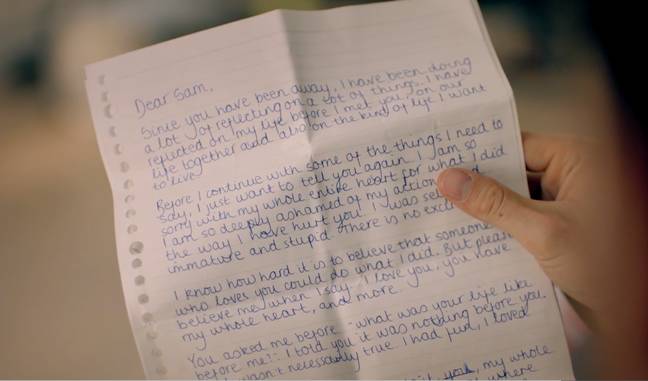 Dear Sam,
Since you have been away, I have been doing
a lot of reflecting on a lot of things. I have
reflected on my life before I met you, on our
life together and also on the kind of life I want
to live.
Before I continue with some of the things I need to
say, I just want to tell you again I am so
sorry with my whole entire heart for what I did
I am so deeply ashamed of my action
the way I have hurt you. I was
immature and stupid. There is no
I know how hard it is to believe that someone
who loves you could do what I did. But please
believe me when I say I love you, you have
my whole heart, and more.
You asked me before - what was your life like
before me?. I told you it was nothing before you.
wasn't necessarily true. I had fun, I loved
my whole
where